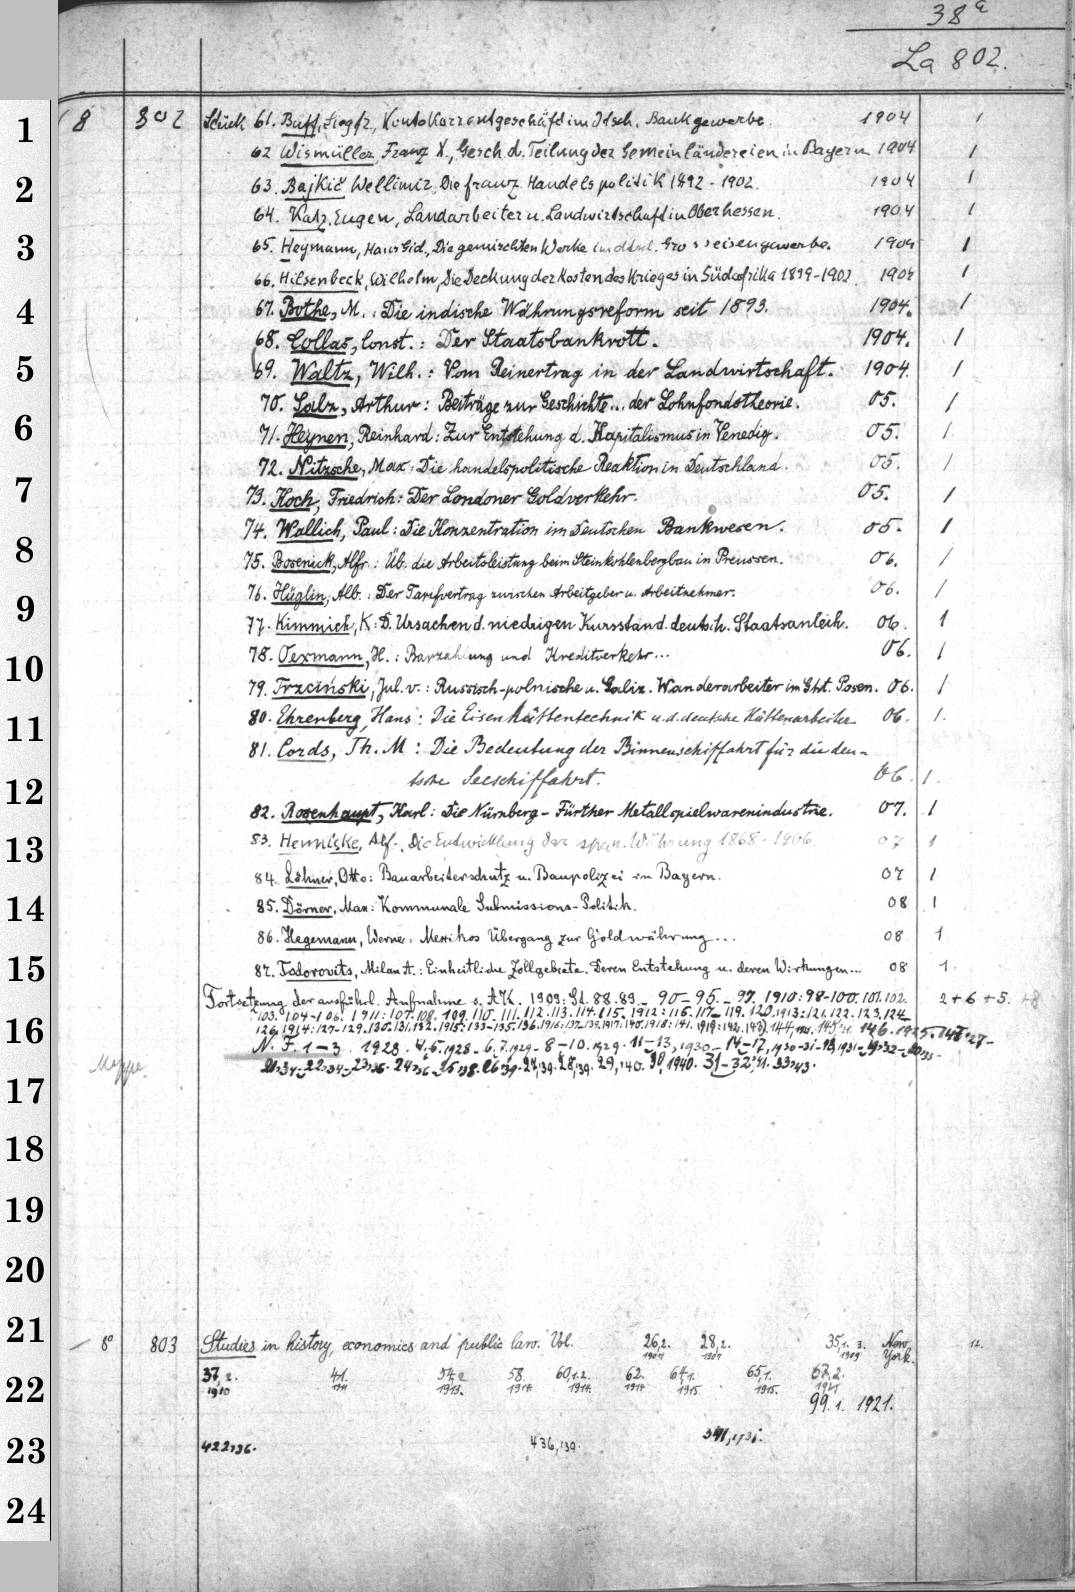 38a
La 802.
8 802 Stück 61. Buff, Siegfr., Kontokorrentgeschäft im dtsch. Bankgewerbe. 1904 1
62 Wismüller, Franz X., Gesch. d. Teilung der Gemeinländereien in Bayern 1904 1
63. Bajkič Wellimir, Die franz. Handelspolitik 1892-1902. 1904 1
64. Katz, Eugen, Landarbeiter u. Landwirtschaft in Oberhessen. 1904 1
65. Heymann, Hans Gid., Die gemischten Werke im dtsch. Grosseisengewerbe. 1904 1
66. Hilsenbeck, Wilhelm, Die Deckung der Kosten des Krieges in Südafrika 1899-1902. 1904 1
67. Bothe, M.: Die indische Währungsreform seit 1893. 1904. 1
68. Collas, Const.: Der Staatsbankrott. 1904. 1
69. Waltz, Wilh.: Vom Reinertrag in der Landwirtschaft. 1904. 1
70. Salz, Arthur: Beiträge zur Geschichte... der Lohnfondstheorie. 05. 1
71. Heynen, Reinhard: Zur Entstehung d. Kapitalismus in Venedig. 05. 1.
72. Nitzsche, Max: Die handelspolitische Reaktion in Deutschland. 05. 1
73. Koch, Friedrich: Der Londoner Goldverkehr. 05. 1
74. Wallich, Paul: Die Konzentration im Deutschen Bankwesen. 05. 1
75. Bosenick, Alfr.: Üb. die Arbeitsleistung beim Steinkohlenbergbau in Preussen. 06. 1
76. Hüglin, Alb.: Der Tarifvertrag zwischen Arbeitgeber u. Arbeitnehmer. 06. 1
77. Kimmich, K: D. Ursachen d. niedrigen Kursstand. deutsch. Staatsanleih. 06. 1
78. Oexmann, H.: Barzahlung und Kreditverkehr... 06. 1
79. Trzciński, Jul. v.: Russisch-polnische u. Galiz. Wanderarbeiter im Ght. Posen. 06. 1
80. Ehrenberg, Hans: Die Eisenhüttentechnik u. d. deutsche Hüttenarbeiter 06. 1.
81. Cords, Th. M: Die Bedeutung der Binnenschiffahrt für die deu-
tsche Seeschiffahrt. 06. 1.
82. Rosenhaupt, Karl: Die Nürnberg-Fürther Metallspielwarenindustrie. 07. 1
83. Henniske, Alf., Die Entwicklung der span. Währung 1868-1906 07 1
84. Löhner, Otto: Bauarbeiterschutz u. Baupolizei in Bayern. 07 1
85. Dörner, Max: Kommunale Submissions-Politik. 08 1
86. Hegemann, Werner: Mexikos Übergang zur Goldwährung... 08 1
87. Todorovits, Milan A.: Einheitliche Zollgebiete. Deren Entstehung u. deren Wirkungen... 08 1.
Fortsetzung der ausführl. Aufnahme s. AK. 1909: St. 88. 89.- 90-95.- 97. 1910: 98-100. 101. 102. 2+6+5. +8
103. 104-106. 1911: 107. 108. 109. 110. 111. 112. 113. 114. 115. 1912: 116. 117- 119. 120. 1913: 121. 122. 123. 124
126. 1914: 127-129. 130. 131. 132. 1915: 133-135. 136. 1916: 137-139. 1917: 140. 1918: 141. 1919: 142. 143. 144. 146. 1925. 147.
N. F. 1-3. 1928. 4,5. 1928- 6,7. 1929- 8-10. 1929. 11-13, 1930- 14-17,
21,34- 22,34- 23, 24,36- 25,38. 26,39. 27,39. 28,39. 29,40. 30, 1940. 31-32,41. 33,43.
Mappe.
8° 803 Studies in history, economics and public law. Vol. 26,2. 28,2. 35,1. 3. New York. 12.
1909
37,2. 41. 54,2 58. 60,1.2. 62. 64,1. 65,1. 67,2.
1910 1911 1913. 1914 1914. 1914 1915. 1915.
99. 1. 1921.
422,36. 436,39.